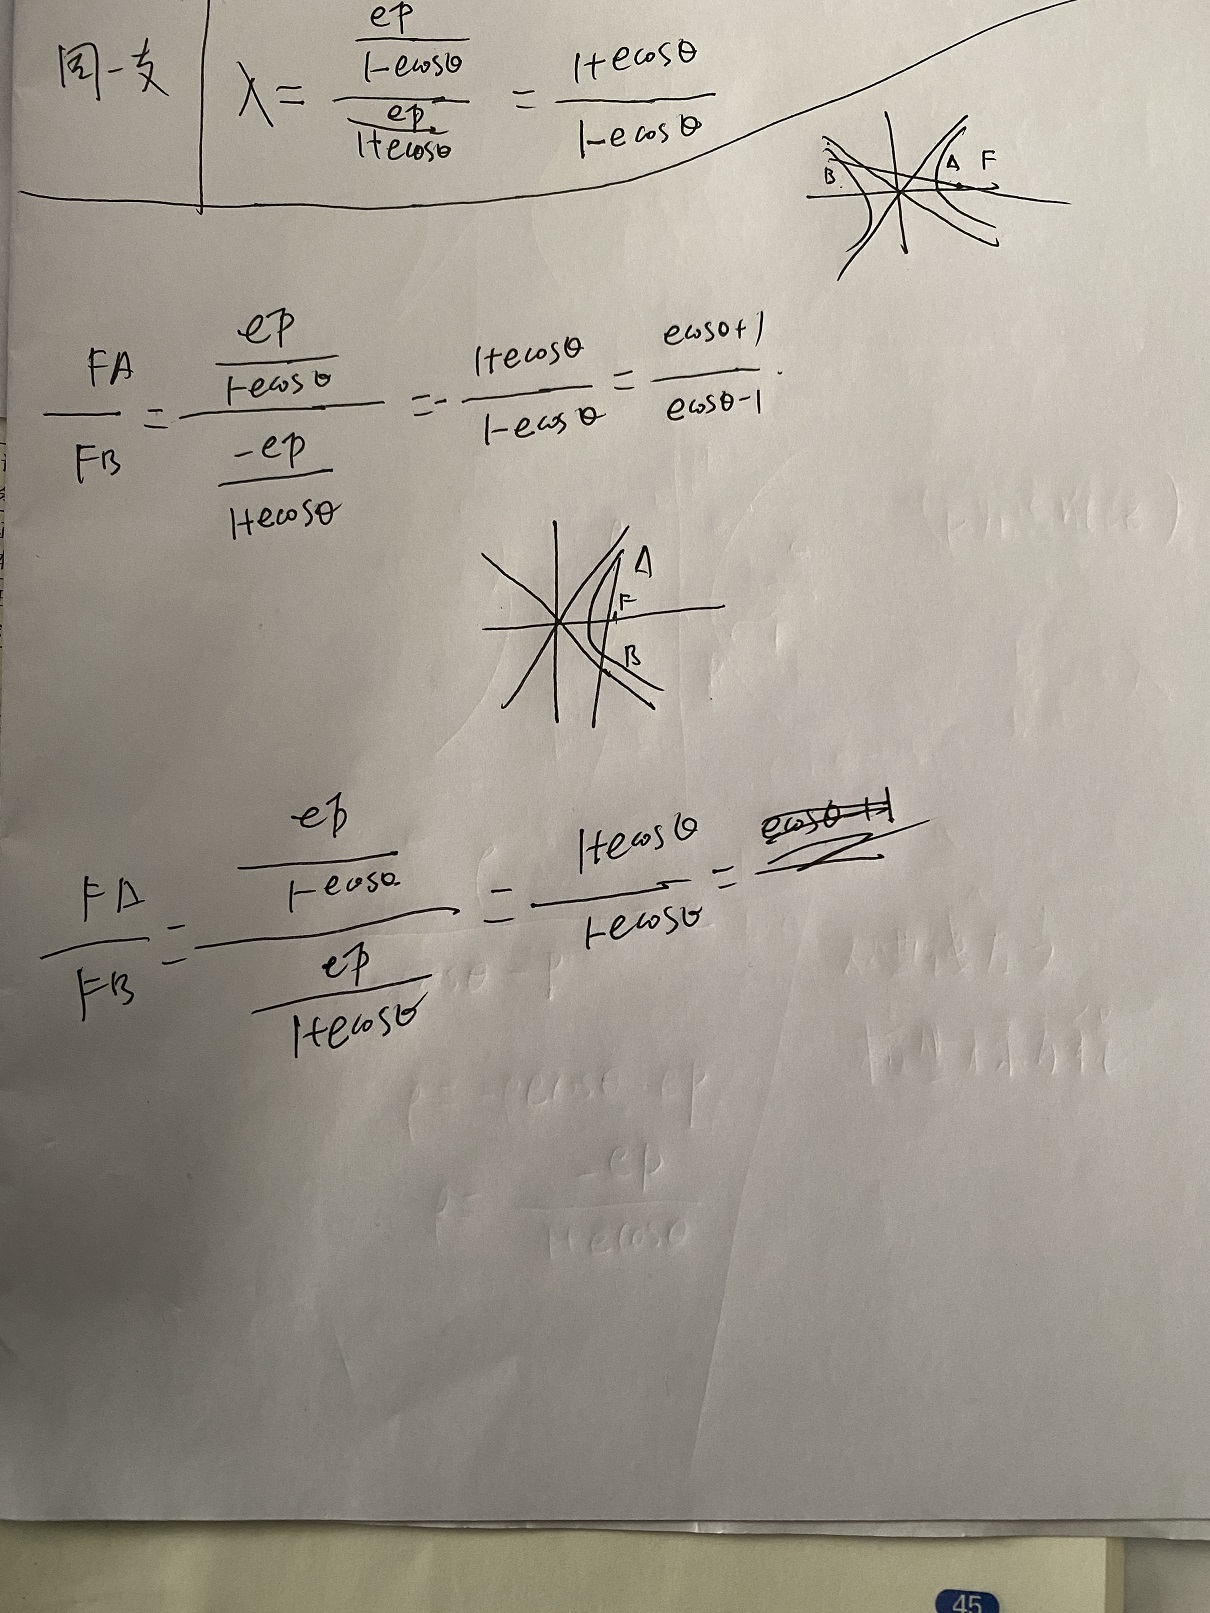 同一支 λ = \frac{\frac{ep}{1-ecosθ}}{\frac{ep}{1+ecosθ}} = \frac{1+ecosθ}{1-ecosθ}
B A F
\frac{FA}{FB} = \frac{\frac{ep}{1-ecosθ}}{\frac{-ep}{1+ecosθ}} = -\frac{1+ecosθ}{1-ecosθ} = \frac{ecosθ+1}{ecosθ-1}.
A
F
B
\frac{FA}{FB} = \frac{\frac{ep}{1-ecosθ}}{\frac{ep}{1+ecosθ}} = \frac{1+ecosθ}{1-ecosθ} =
45